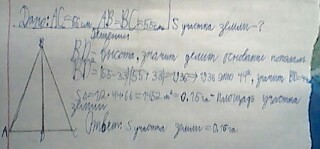 Дано: AC=66см, AB=BC=55см | S участка земли-?
Решение
BD - высота, значит делит основание пополам
BD²=(55-33)(55+33)=1936= 1936 это 44², значит BD=44м
SΔ=1/2·44·66=1452 м²=0.15га - площадь участка
земли
Ответ: S участка земли=0.15га
B
A
C